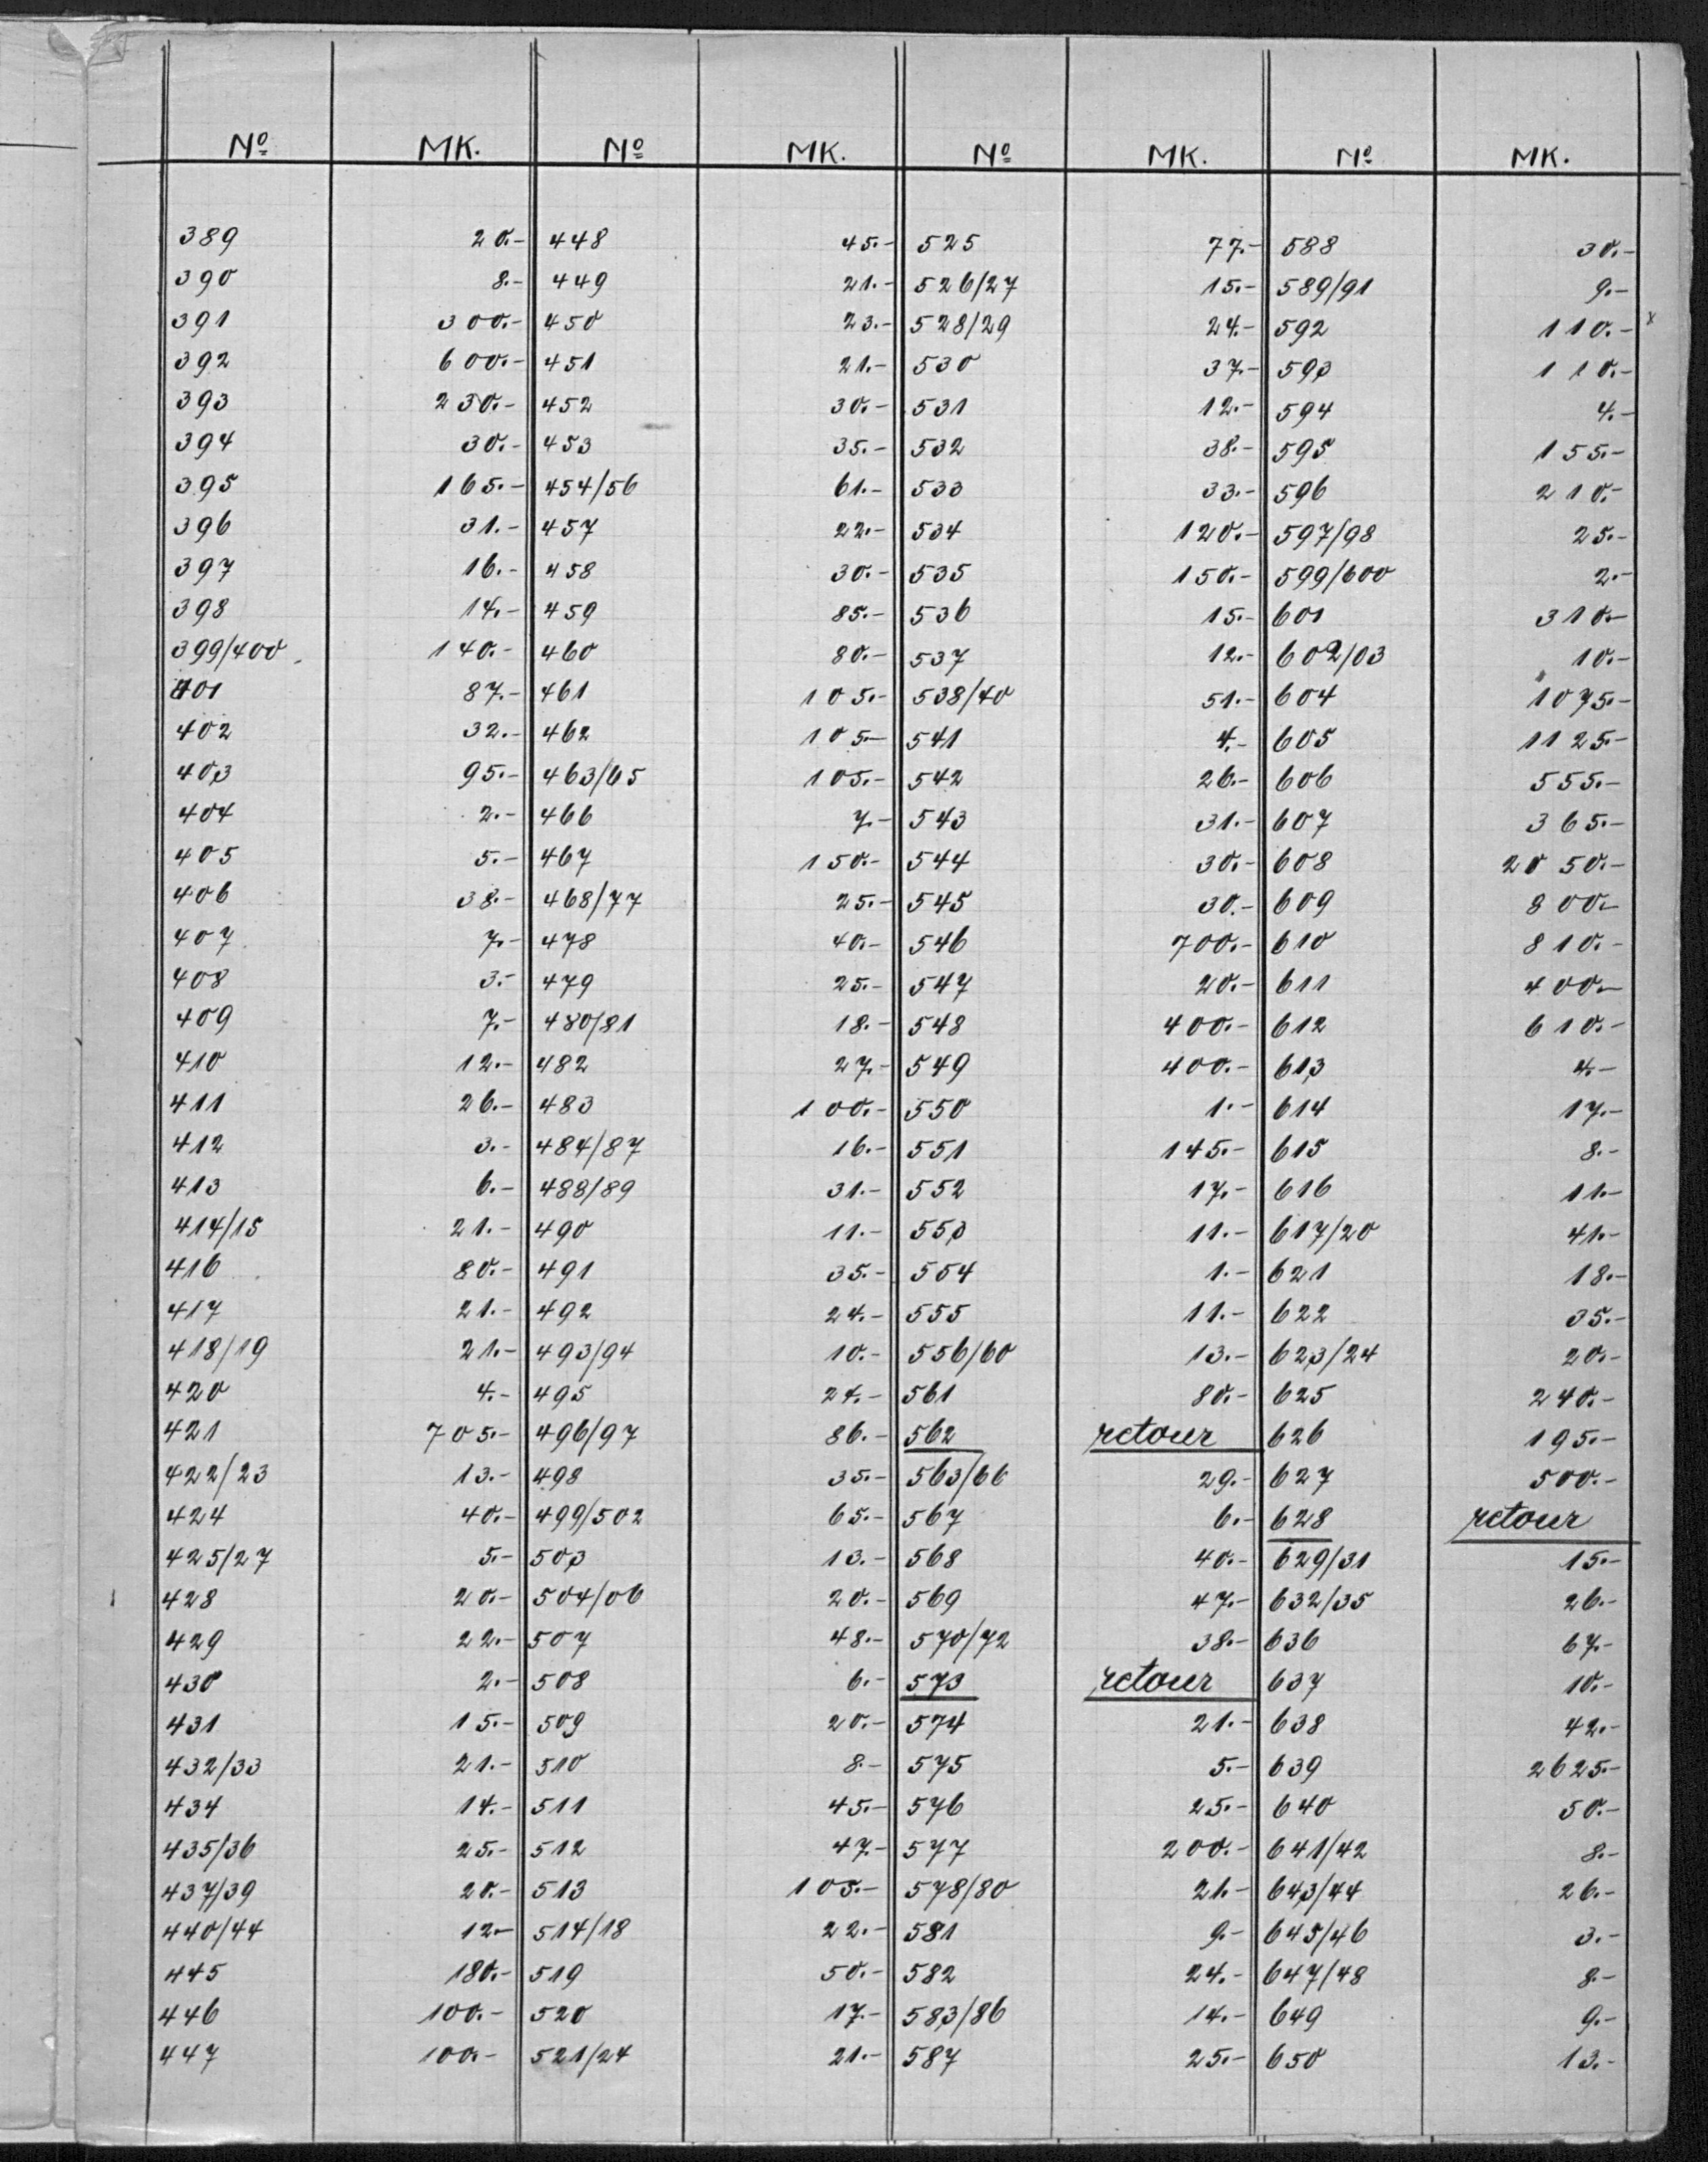 Nº MK. Nº MK. Nº MK. Nº MK.
389 20.- 448 45.- 525 77.- 588 30.-
390 8.- 449 21.- 526/27 15.- 589/91 9.-
391 300.- 450 23.- 528/29 24.- 592 110.- x
392 600.- 451 21.- 530 37.- 593 110.-
393 230.- 452 30.- 531 12.- 594 4.-
394 30.- 453 35.- 532 38.- 595 155.-
395 165.- 454/56 61.- 533 33.- 596 210.-
396 31.- 457 22.- 534 120.- 597/98 25.-
397 16.- 458 30.- 535 150.- 599/600 2.-
398 14.- 459 85.- 536 15.- 601 310.-
399/400 140.- 460 80.- 537 12.- 602/03 10.-
401 87.- 461 105.- 538/40 51.- 604 1075.-
402 32.- 462 105.- 541 4.- 605 1125.-
403 95.- 463/65 105.- 542 26.- 606 555.-
404 2.- 466 7.- 543 31.- 607 365.-
405 5.- 467 150.- 544 30.- 608 2050.-
406 38.- 468/77 25.- 545 30.- 609 800.-
407 7.- 478 40.- 546 700.- 610 810.-
408 3.- 479 25.- 547 20.- 611 400.-
409 7.- 480/81 18.- 548 400.- 612 610.-
410 12.- 482 27.- 549 400.- 613 4.-
411 26.- 483 100.- 550 1.- 614 17.-
412 3.- 484/87 16.- 551 145.- 615 8.-
413 6.- 488/89 31.- 552 17.- 616 11.-
414/15 21.- 490 11.- 553 11.- 617/20 41.-
416 80.- 491 35.- 554 1.- 621 18.-
417 21.- 492 24.- 555 11.- 622 35.-
418/19 21.- 493/94 10.- 556/60 13.- 623/24 20.-
420 4.- 495 24.- 561 80.- 625 240.-
421 705.- 496/97 86.- 562 retour 626 195.-
422/23 13.- 498 35.- 563/66 29.- 627 500.-
424 40.- 499/502 65.- 567 6.- 628 retour
425/27 5.- 503 13.- 568 40.- 629/31 15.-
428 20.- 504/06 20.- 569 47.- 632/35 26.-
429 22.- 507 48.- 570/72 38.- 636 67.-
430 2.- 508 6.- 573 retour 637 10.-
431 15.- 509 20.- 574 21.- 638 42.-
432/33 21.- 510 8.- 575 5.- 639 2625.-
434 14.- 511 45.- 576 25.- 640 50.-
435/36 25.- 512 47.- 577 200.- 641/42 8.-
437/39 20.- 513 105.- 578/80 21.- 643/44 26.-
440/44 12.- 514/18 22.- 581 9.- 645/46 3.-
445 180.- 519 50.- 582 24.- 647/48 8.-
446 100.- 520 17.- 583/86 14.- 649 9.-
447 100.- 521/24 21.- 587 25.- 650 13.-